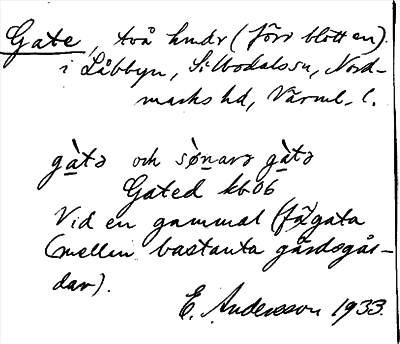 Gate, två hmdr (förr blott en)
i Låbbyn, Silbodalssn, Nord-
marks hd, Värml. l.
gàtə och sø̀narə gàtə
Gated kb 06
Vid en gammal (fä)gata
(mellan bastanta gärdsgår-
dar).
E. Andersson 1933.